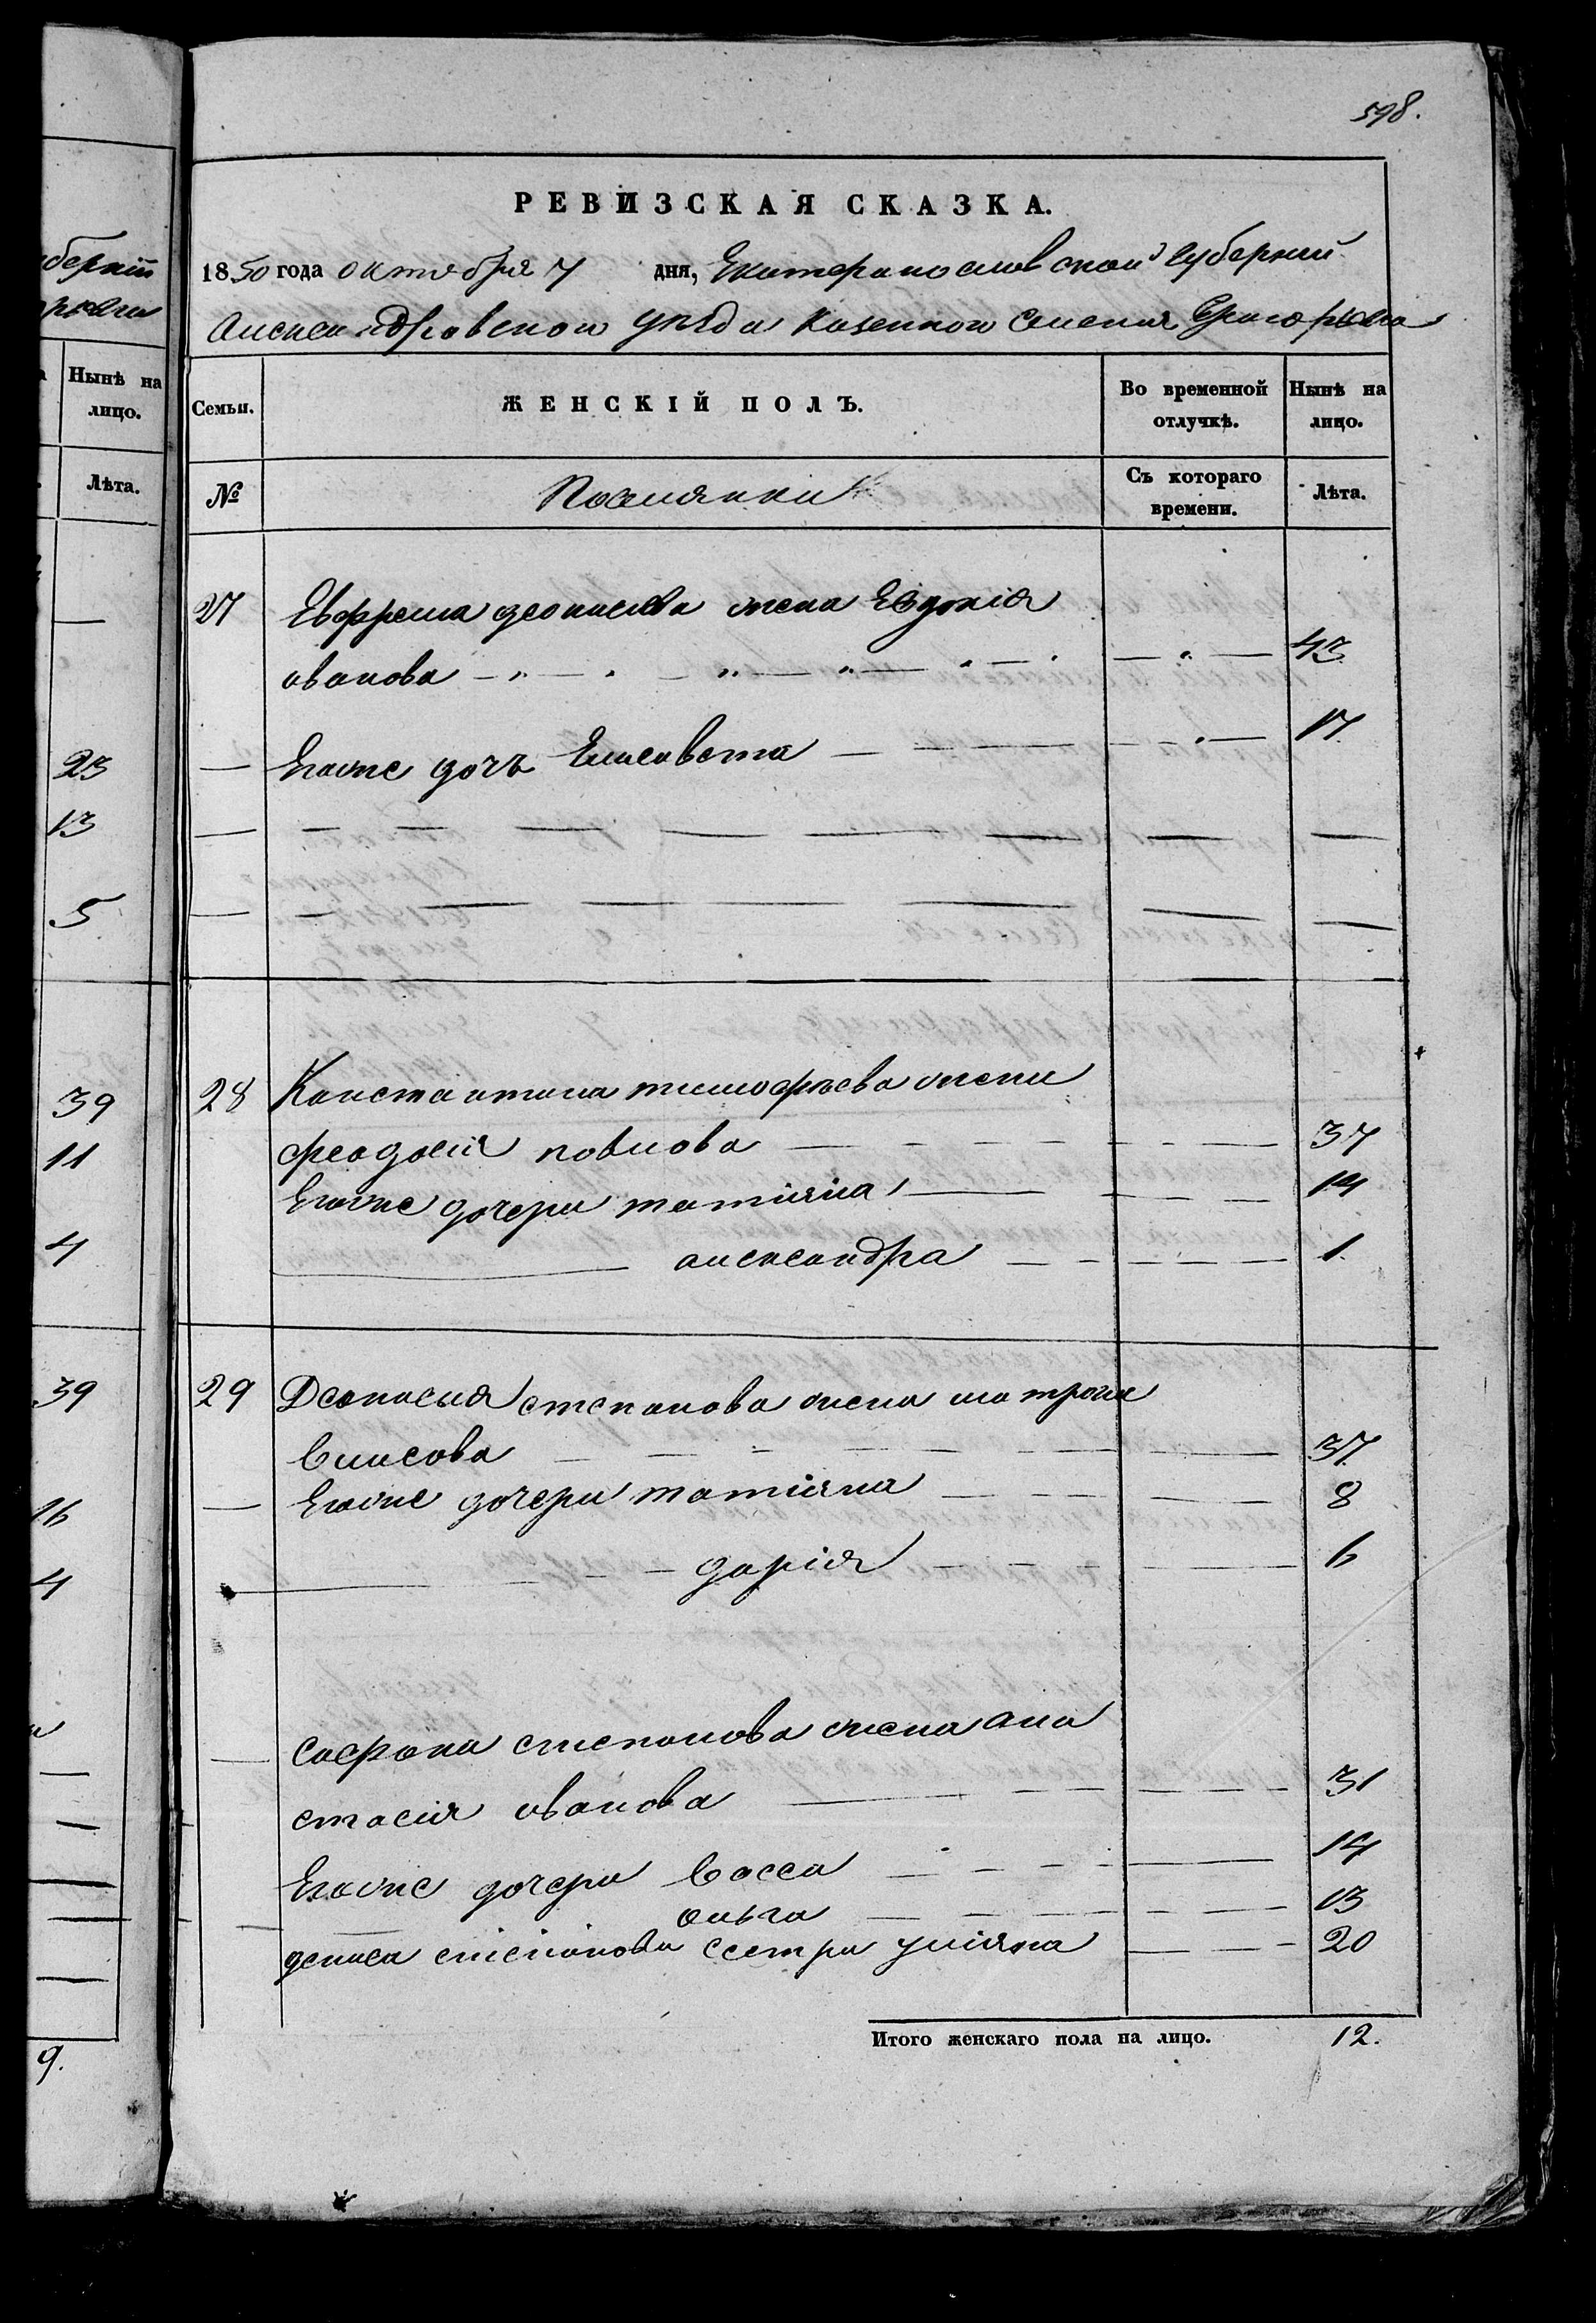 598.
РЕВИЗСКАЯ СКАЗКА.
1850 года октября 7 дня, Екатеринославской губернии
Александровского уезда казенного селения Григорьевки
Семьи.
ЖЕНСКІЙ ПОЛЪ.
Во временной отлучкѣ.
Нынѣ на лицо.
№
Поселянки
Съ котораго времени.
Лѣта.
27 Евфрема денисова жена Евдокія
иванова 43
Егоже дочъ Елисавета 17
28 Константина тимофѣева жена
феодосия повлова 37
Егоже дочери татияна 14
александра 1
29 степанова жена матрона
власова 37
Егоже дочери татияна 8
дарія 6
Сафрона степанова жена ана
стасія иванова 31
Егоже дочери Васса 14
ольга 13
дениса степанова сестра улияна 20
Итого женскаго пола на лицо. 12.
берній
Нынѣ на лицо.
Лѣта.
23
13
5
39
11
4
39
16
4
9.